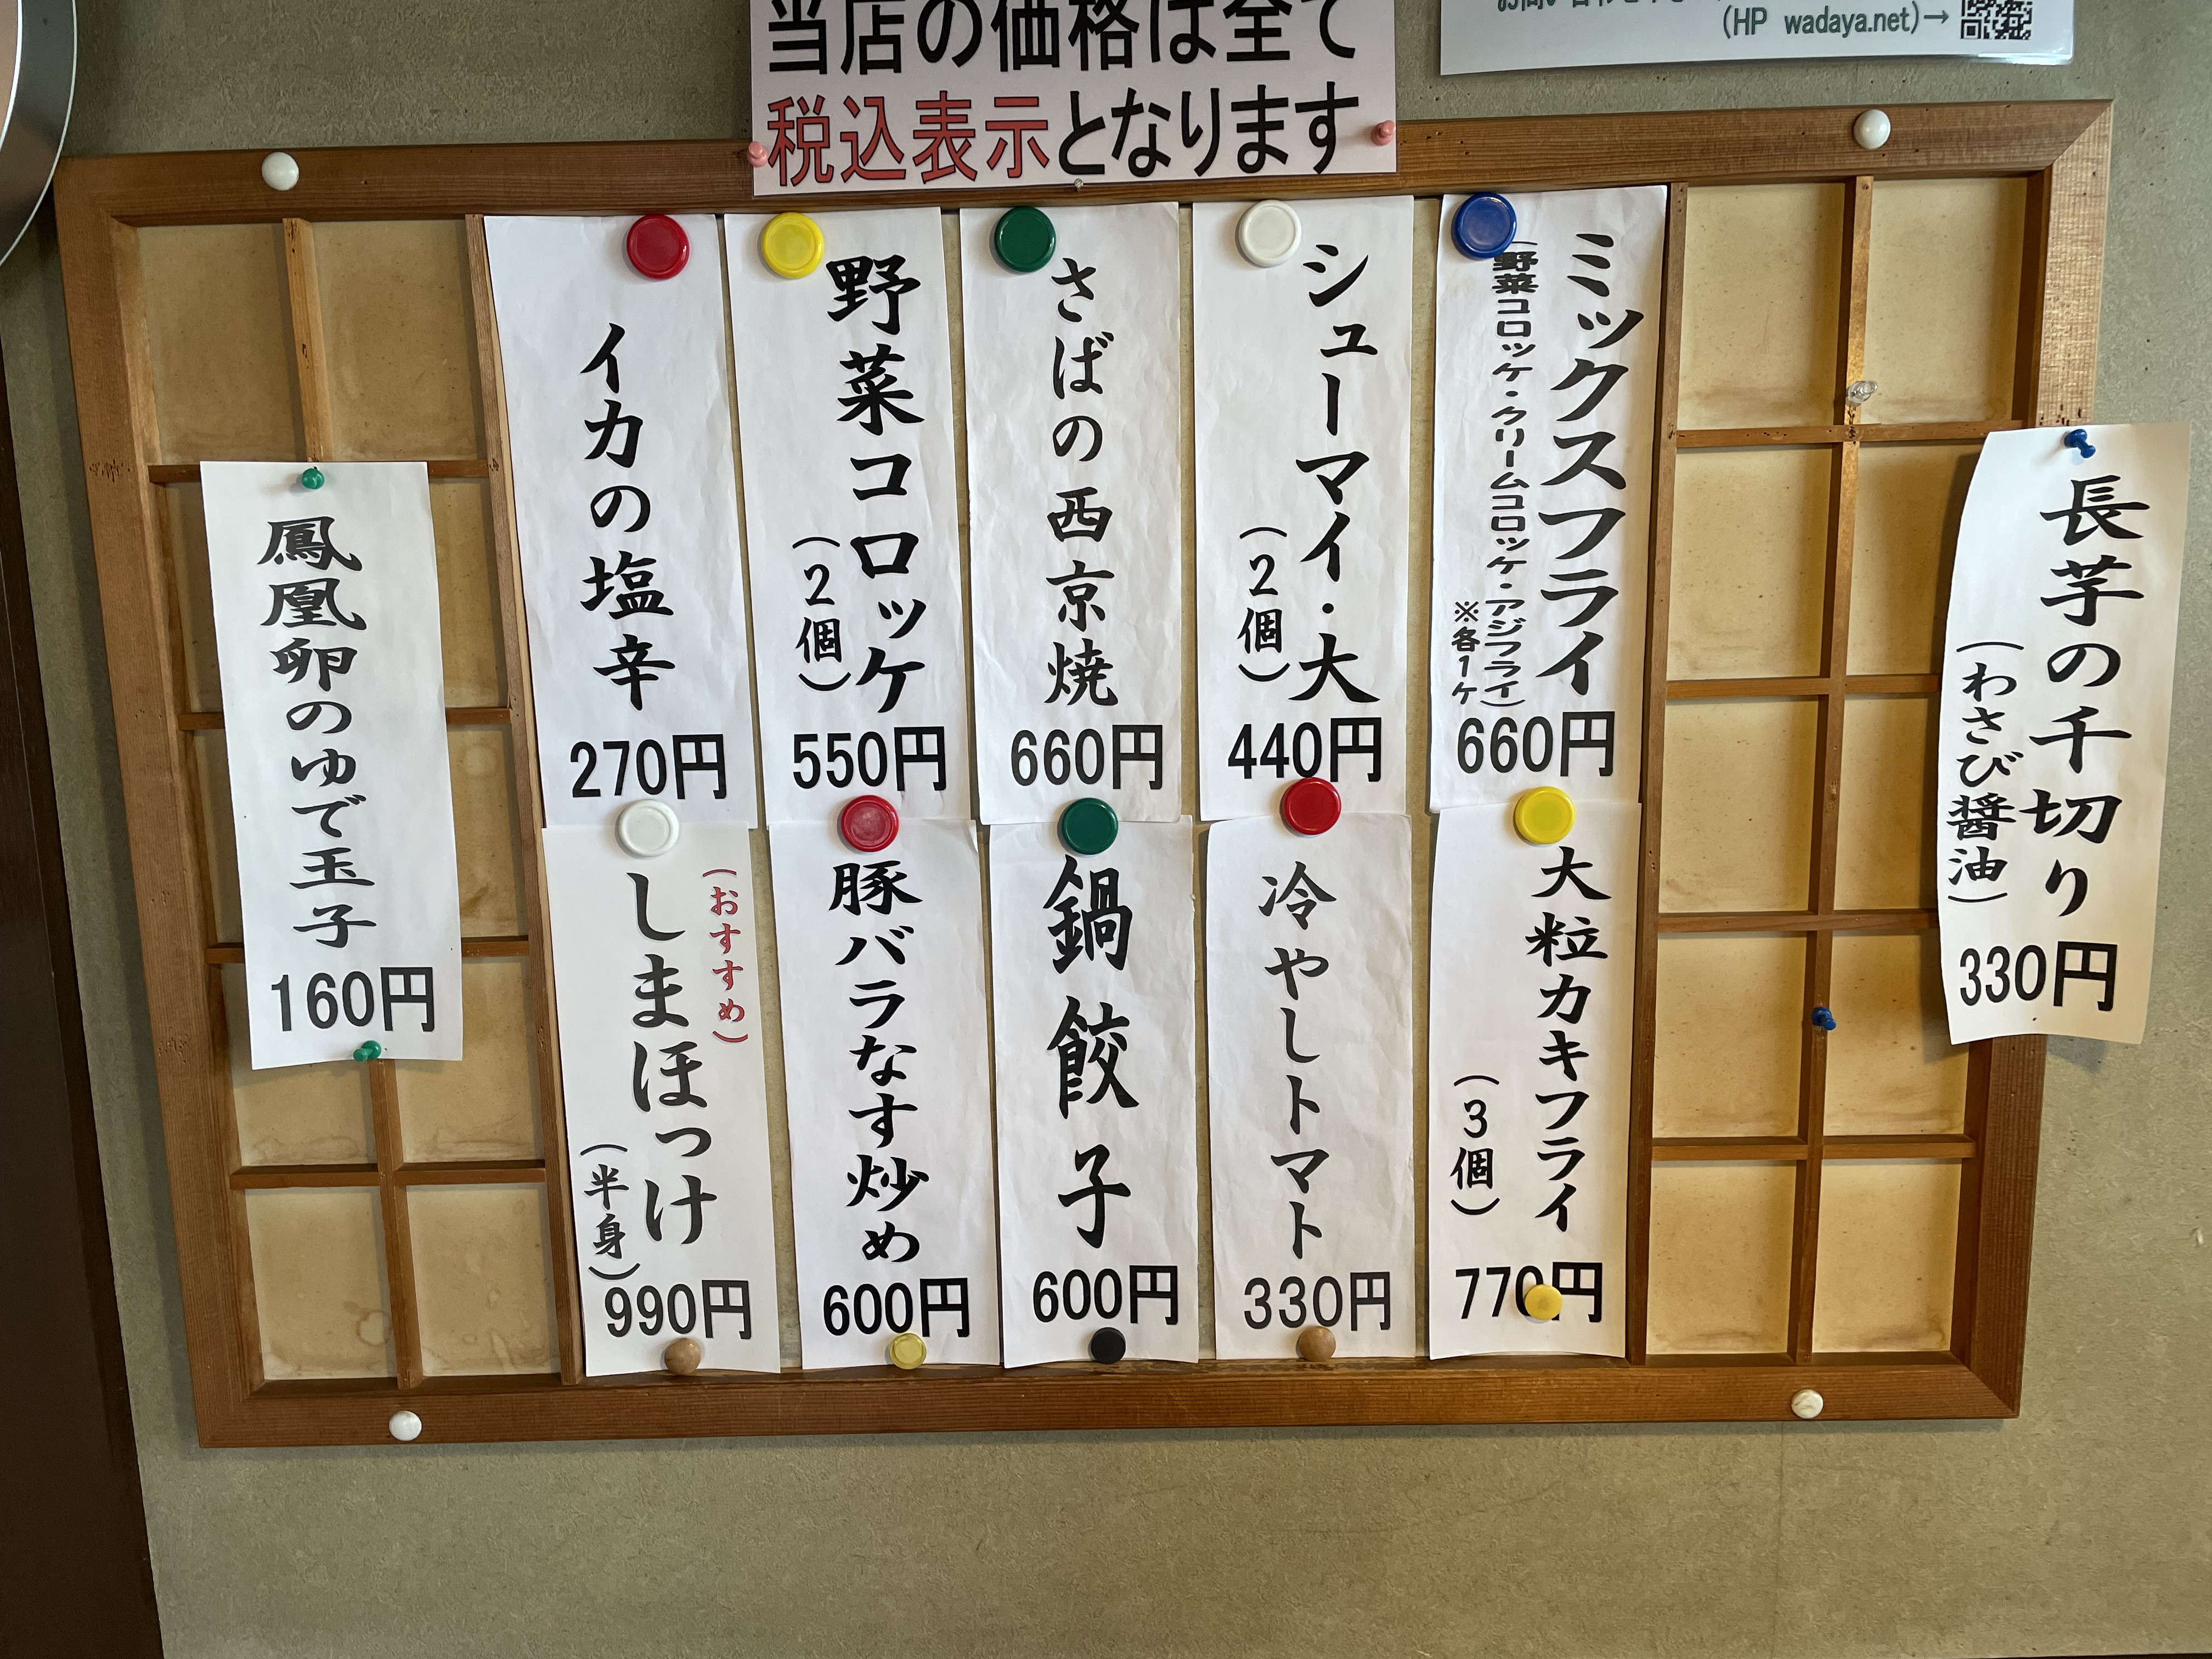 当店の価格は全て
税込表示となります
(HP wadaya.net)→
長芋の千切り
(わさび醤油)
330円
ミックスフライ
(野菜コロッケ・クリームコロッケ・アジフライ)
※各1ケ
660円
シューマイ・大
(2個)
440円
さばの西京焼
660円
野菜コロッケ
(2個)
550円
イカの塩辛
270円
大粒カキフライ
(3個)
770円
冷やしトマト
330円
鍋餃子
600円
豚バラなす炒め
600円
(おすすめ)
しまほっけ
(半身)
990円
鳳凰卵のゆで玉子
160円